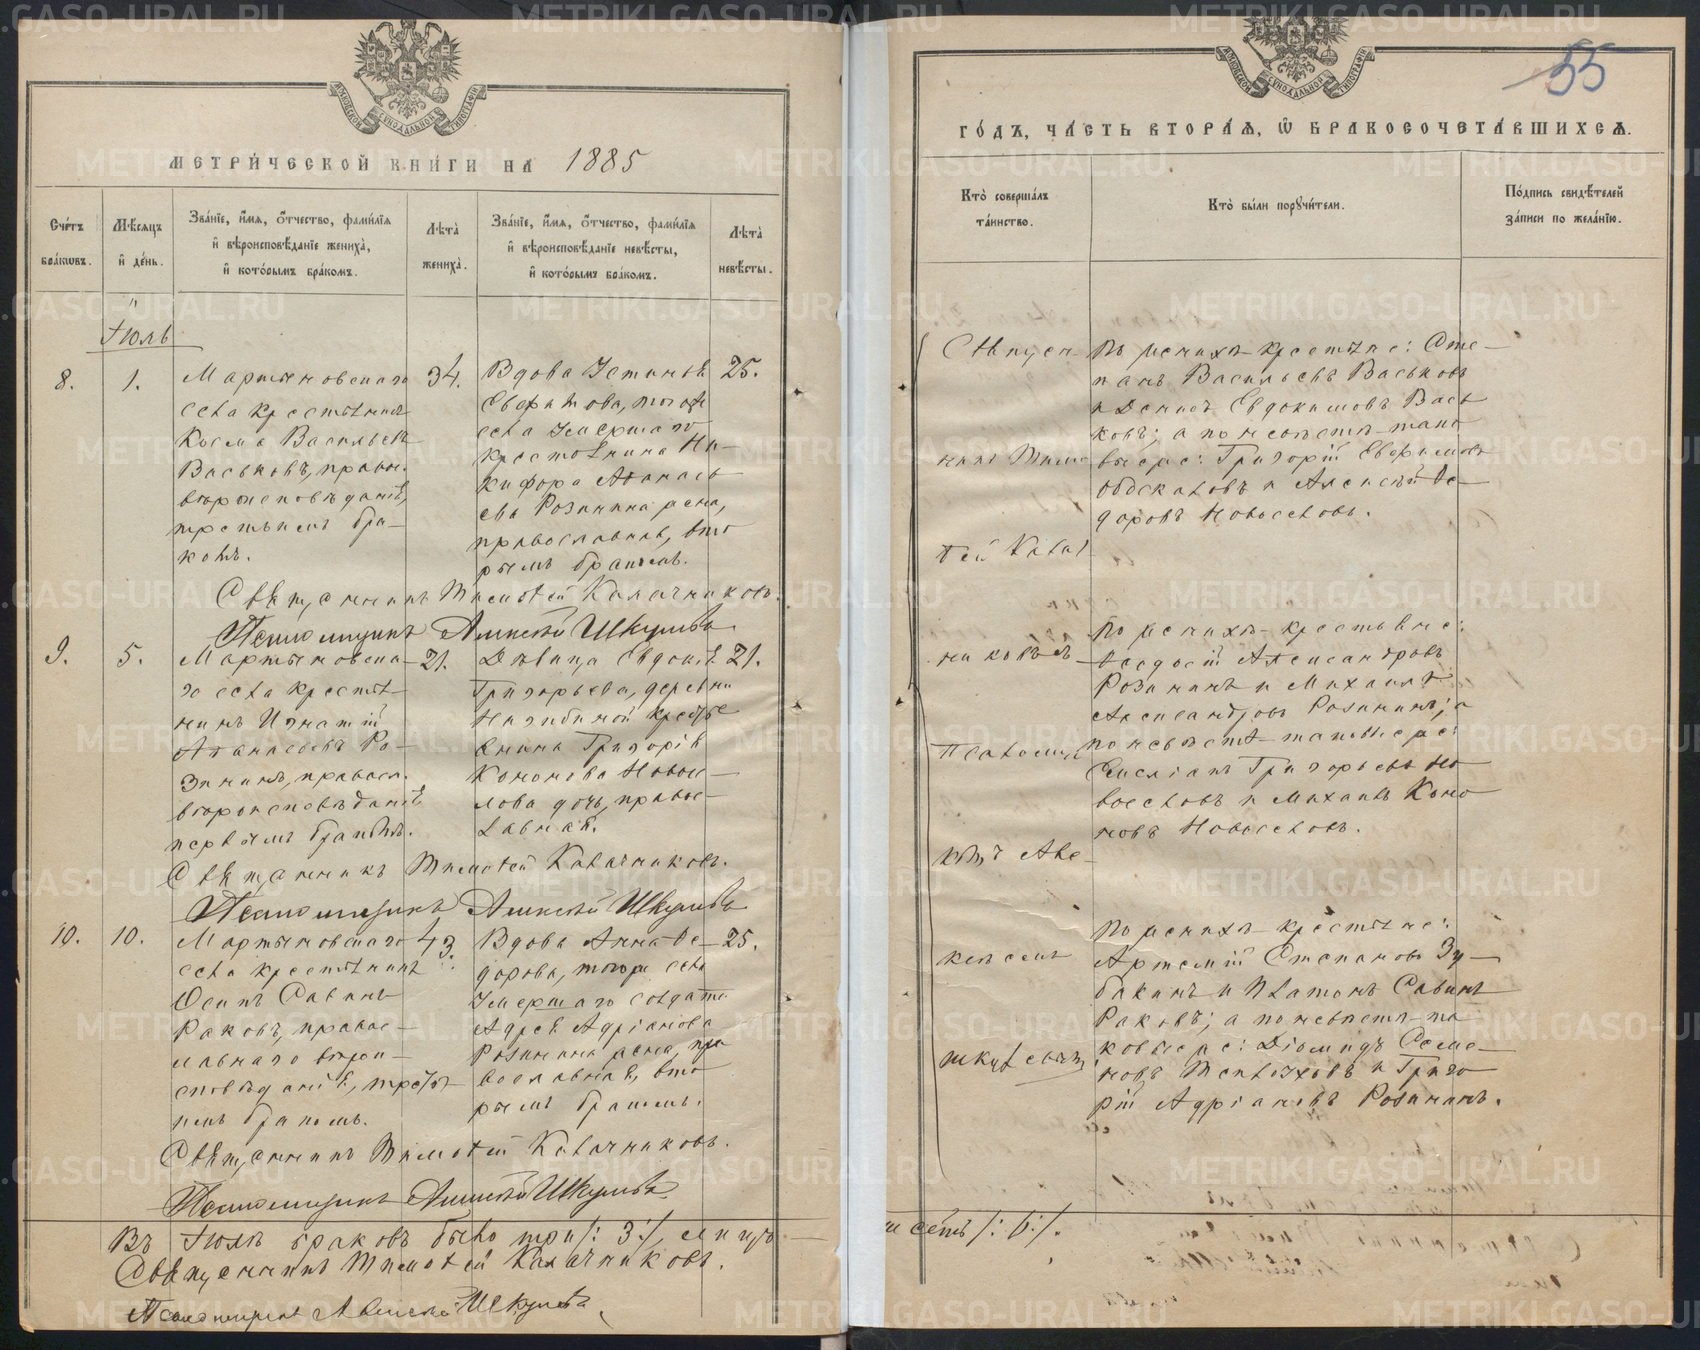 МЕТРИ́ЧЕСКОЙ КНИ́ГИ НА 1885
Сче́тъ бра́кωвъ.
Мѣ́сяцъ и҆ де́нь.
Зва́нїе, и҆́мѧ, ѻ҆́тчество, фами́лїѧ и҆ вѣроисповѣ́данїе жениха̀, и҆ кото́рымъ бра́комъ.
Лѣта̀ жениха̀.
Зва́нїе, и҆́мѧ, ѻ҆́тчество, фами́лїѧ и҆ вѣроисповѣ́данїе невѣ́сты, и҆ кото́рымъ бра́комъ.
Лѣта̀ невѣ́сты.
Іюль
8.
1.
Мартыновскаго
села крестьянинъ
Косма Васильевъ
Васьковъ, правос.
вѣроисповѣданія,
третьимъ бра-
комъ.
34.
Вдова Устинья
того же
села умершаго
крестьянина Ни-
кифора Аѳанась
ева Розинина жена,
православная, вто
рымъ бракомъ.
25.
Священникъ Тимоѳей Калачниковъ.
Псаломщикъ Алексѣй Шкулевъ
9.
5.
Мартыновска-
го села крестья-
нинъ Игнатій
Аѳанасьевъ Ро-
зининъ, правосл.
вѣроисповѣданія
первымъ бракомъ.
21.
Дѣвица Евдокія
Григорьева, деревни
кресть
янина Григорія
Кононова Новос-
лова дочь, правос-
лавная.
21.
Священникъ Тимоѳей Калачниковъ.
Псаломщикъ Алексѣй Шкулевъ
10.
10.
Мартыновскаго
села крестьянинъ
Осипъ Савинъ
Раковъ, правос-
лавнаго вѣрои-
сповѣданія, треть
имъ бракомъ.
43.
Вдова Анна Ѳе-
дорова, того же села
умершаго солдата
Адріанова
Розинина жена, пра
вославная, вто
рымъ бракомъ.
25.
Священникъ Тимоѳей Калачниковъ.
Псаломщикъ Алексѣй Шкулевъ
Въ Іюлѣ браковъ было три /: 3 :/, лицъ
Священникъ Тимоѳей Калачниковъ.
Псаломщикъ Алексѣй Шкулевъ
55
ГО́ДЪ, ЧА́СТЬ ВТОРА́Ѧ, Ѡ҆ БРАКОСОЧЕТА́ВШИХСѦ.
Кто̀ соверша́лъ та́инство.
Кто̀ бы́ли порꙋчи́тели.
По́дпись свидѣ́телей за́писи по жела́нїю.
Священ-
никъ Тимо
ѳей Калач
никовъ съ
псаломщи
комъ Але-
ксѣемъ
Шкулевымъ
По женихѣ крестьяне: Сте-
панъ Васильевъ Васьковъ
и Денисъ Евдокимовъ Вась
ковъ; а по невѣстѣ тако
вые же: Григорій
и Алексѣй Ѳе-
доровъ Новоселовъ.
По женихѣ крестьяне:
Ѳеодосій Александровъ
Розининъ и Михаилъ
Александровъ Розининъ; а
по невѣстѣ таковые же:
Григорьевъ Но
воселовъ и Михаилъ Коно
новъ Новоселовъ.
По женихѣ крестьяне:
Артемій Степановъ Зу-
бакинъ и Платонъ Савинъ
Раковъ; а по невѣстѣ та
ковые же: Діомидъ Семе-
новъ и Григо
рій Адріановъ Розининъ.
шесть /: 6 :/.